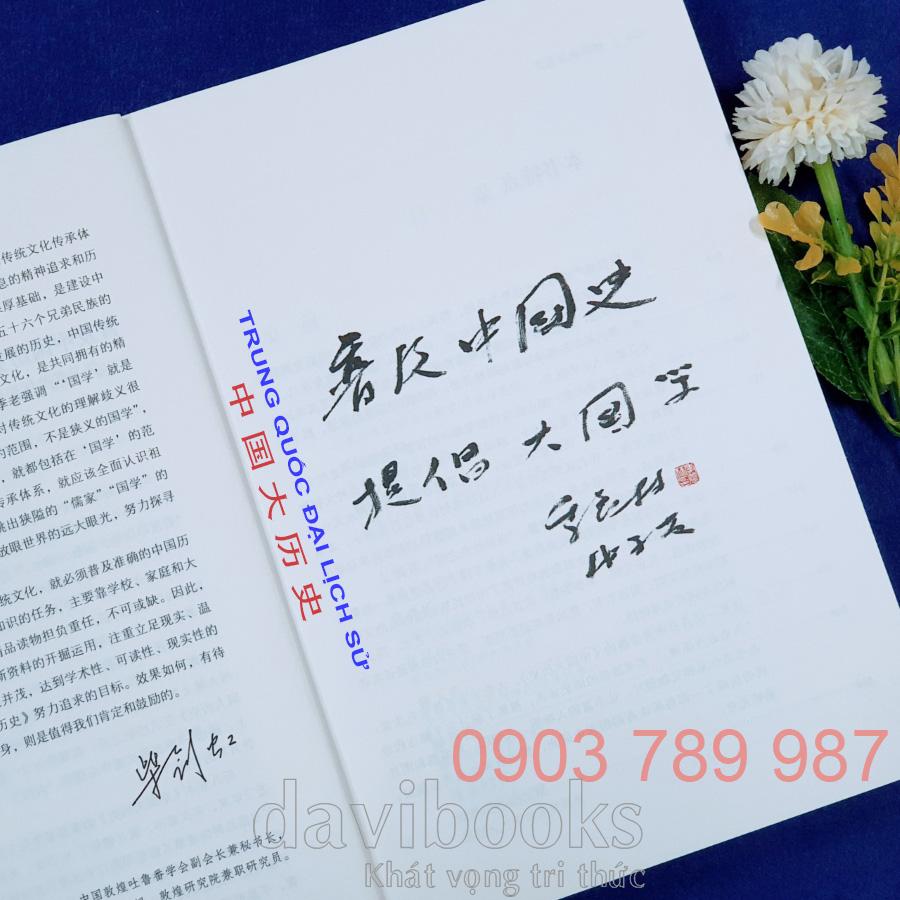 传统文化传承体
息的精神追求和历
深厚基础，是建设中
五十六个兄弟民族的
发展的历史，中国传统
文化，是共同拥有的精
季老强调“‘国学’就是
对传统文化的理解歧义很
的范围，不是狭义的国学”，
，就都包括在‘国学’的范
传承体系，就应该全面认识祖
跳出狭隘的“儒家”“国学”的
放眼世界的远大眼光，努力探寻
统文化，就必须普及准确的中国历
知识的任务，主要靠学校、家庭和大
精品读物担负重任，不可或缺。因此，
新资料的开掘运用，注重立足现实、温
并茂，达到学术性、可读性、现实性的
历史》努力追求的目标。效果如何，有待
身，则是值得我们肯定和鼓励的。
柴剑虹
中国敦煌吐鲁番学会副会长兼秘书长，
敦煌研究院兼职研究员。
普及中国史
提倡大国学
季羡林
TRUNG QUỐC ĐẠI LỊCH SỬ
中国大历史
0903 789 987
davibooks
Khát vọng tri thức